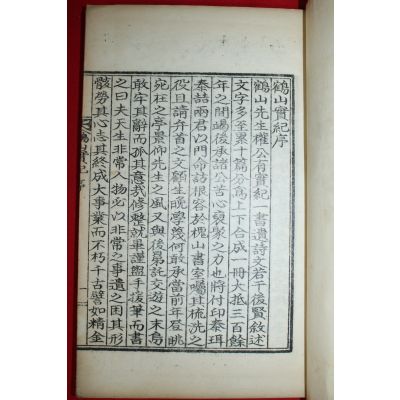 鶴山實紀序
鶴山先生權公有實紀一書遺詩文若干後賢敘述
文字多至累十篇分爲上下合成一冊大抵三百餘
年之間後承諸公苦心裒聚之力也將付印泰珥
泰喆兩君以門命訪根容於槐山書室囑其梳洗之
役且請弁首之文顧生晩學蔑何敢承當前年昼晀
宛枉之亭景仰先生之風又與後昆託交遊之末烏
敢牢其辭而孤其意哉修整就畢謹盥手援筆而書
之曰夫天生非常人物必以非常之事遺之困其形
骸勞其心志其終成大事業而不朽千古譬如精金
鶴山實紀序
一